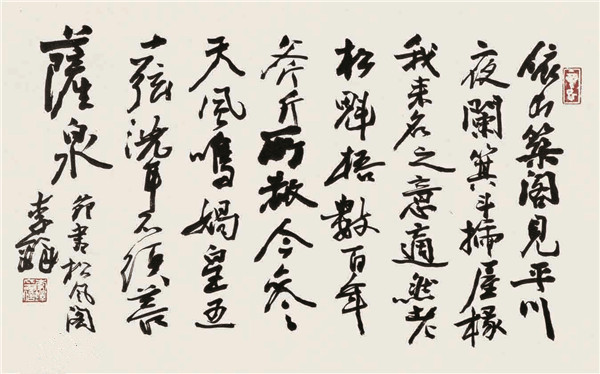 依山築阁見平川
夜闌箕斗插屋椽
我来名之意適然老
松魁梧數百年
斧斤所赦今參
天風鳴媧皇五
十弦洗耳不須菩
薩泉
節書松风阁
李